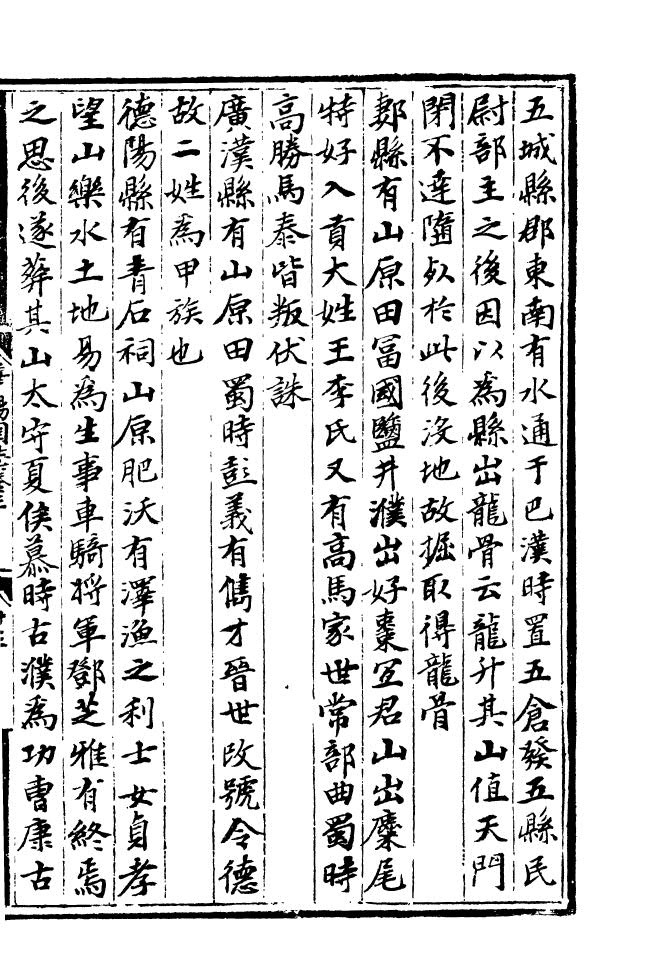 五城縣郡東南有水通于巴漢時置五倉發五縣民
尉部主之後因以為縣出龍骨云龍升其山值天門
閉不達隨死於此後没地故掘取得龍骨
郪縣有山原田富國鹽井濮出好棗宜君山出麋尾
特好入貢大姓王李氏又有高馬家世常部曲蜀時
高勝馬泰皆叛伏誅
廣漢縣有山原田蜀時彭義有儁才晉世改號令德
故二姓為甲族也
德陽縣有青石祠山原肥沃有澤漁之利士女貞孝
望山樂水土地易為生事車騎將軍鄧芝雅有終焉
之思後遂葬其山太守夏侯慕時古濮為功曹康古